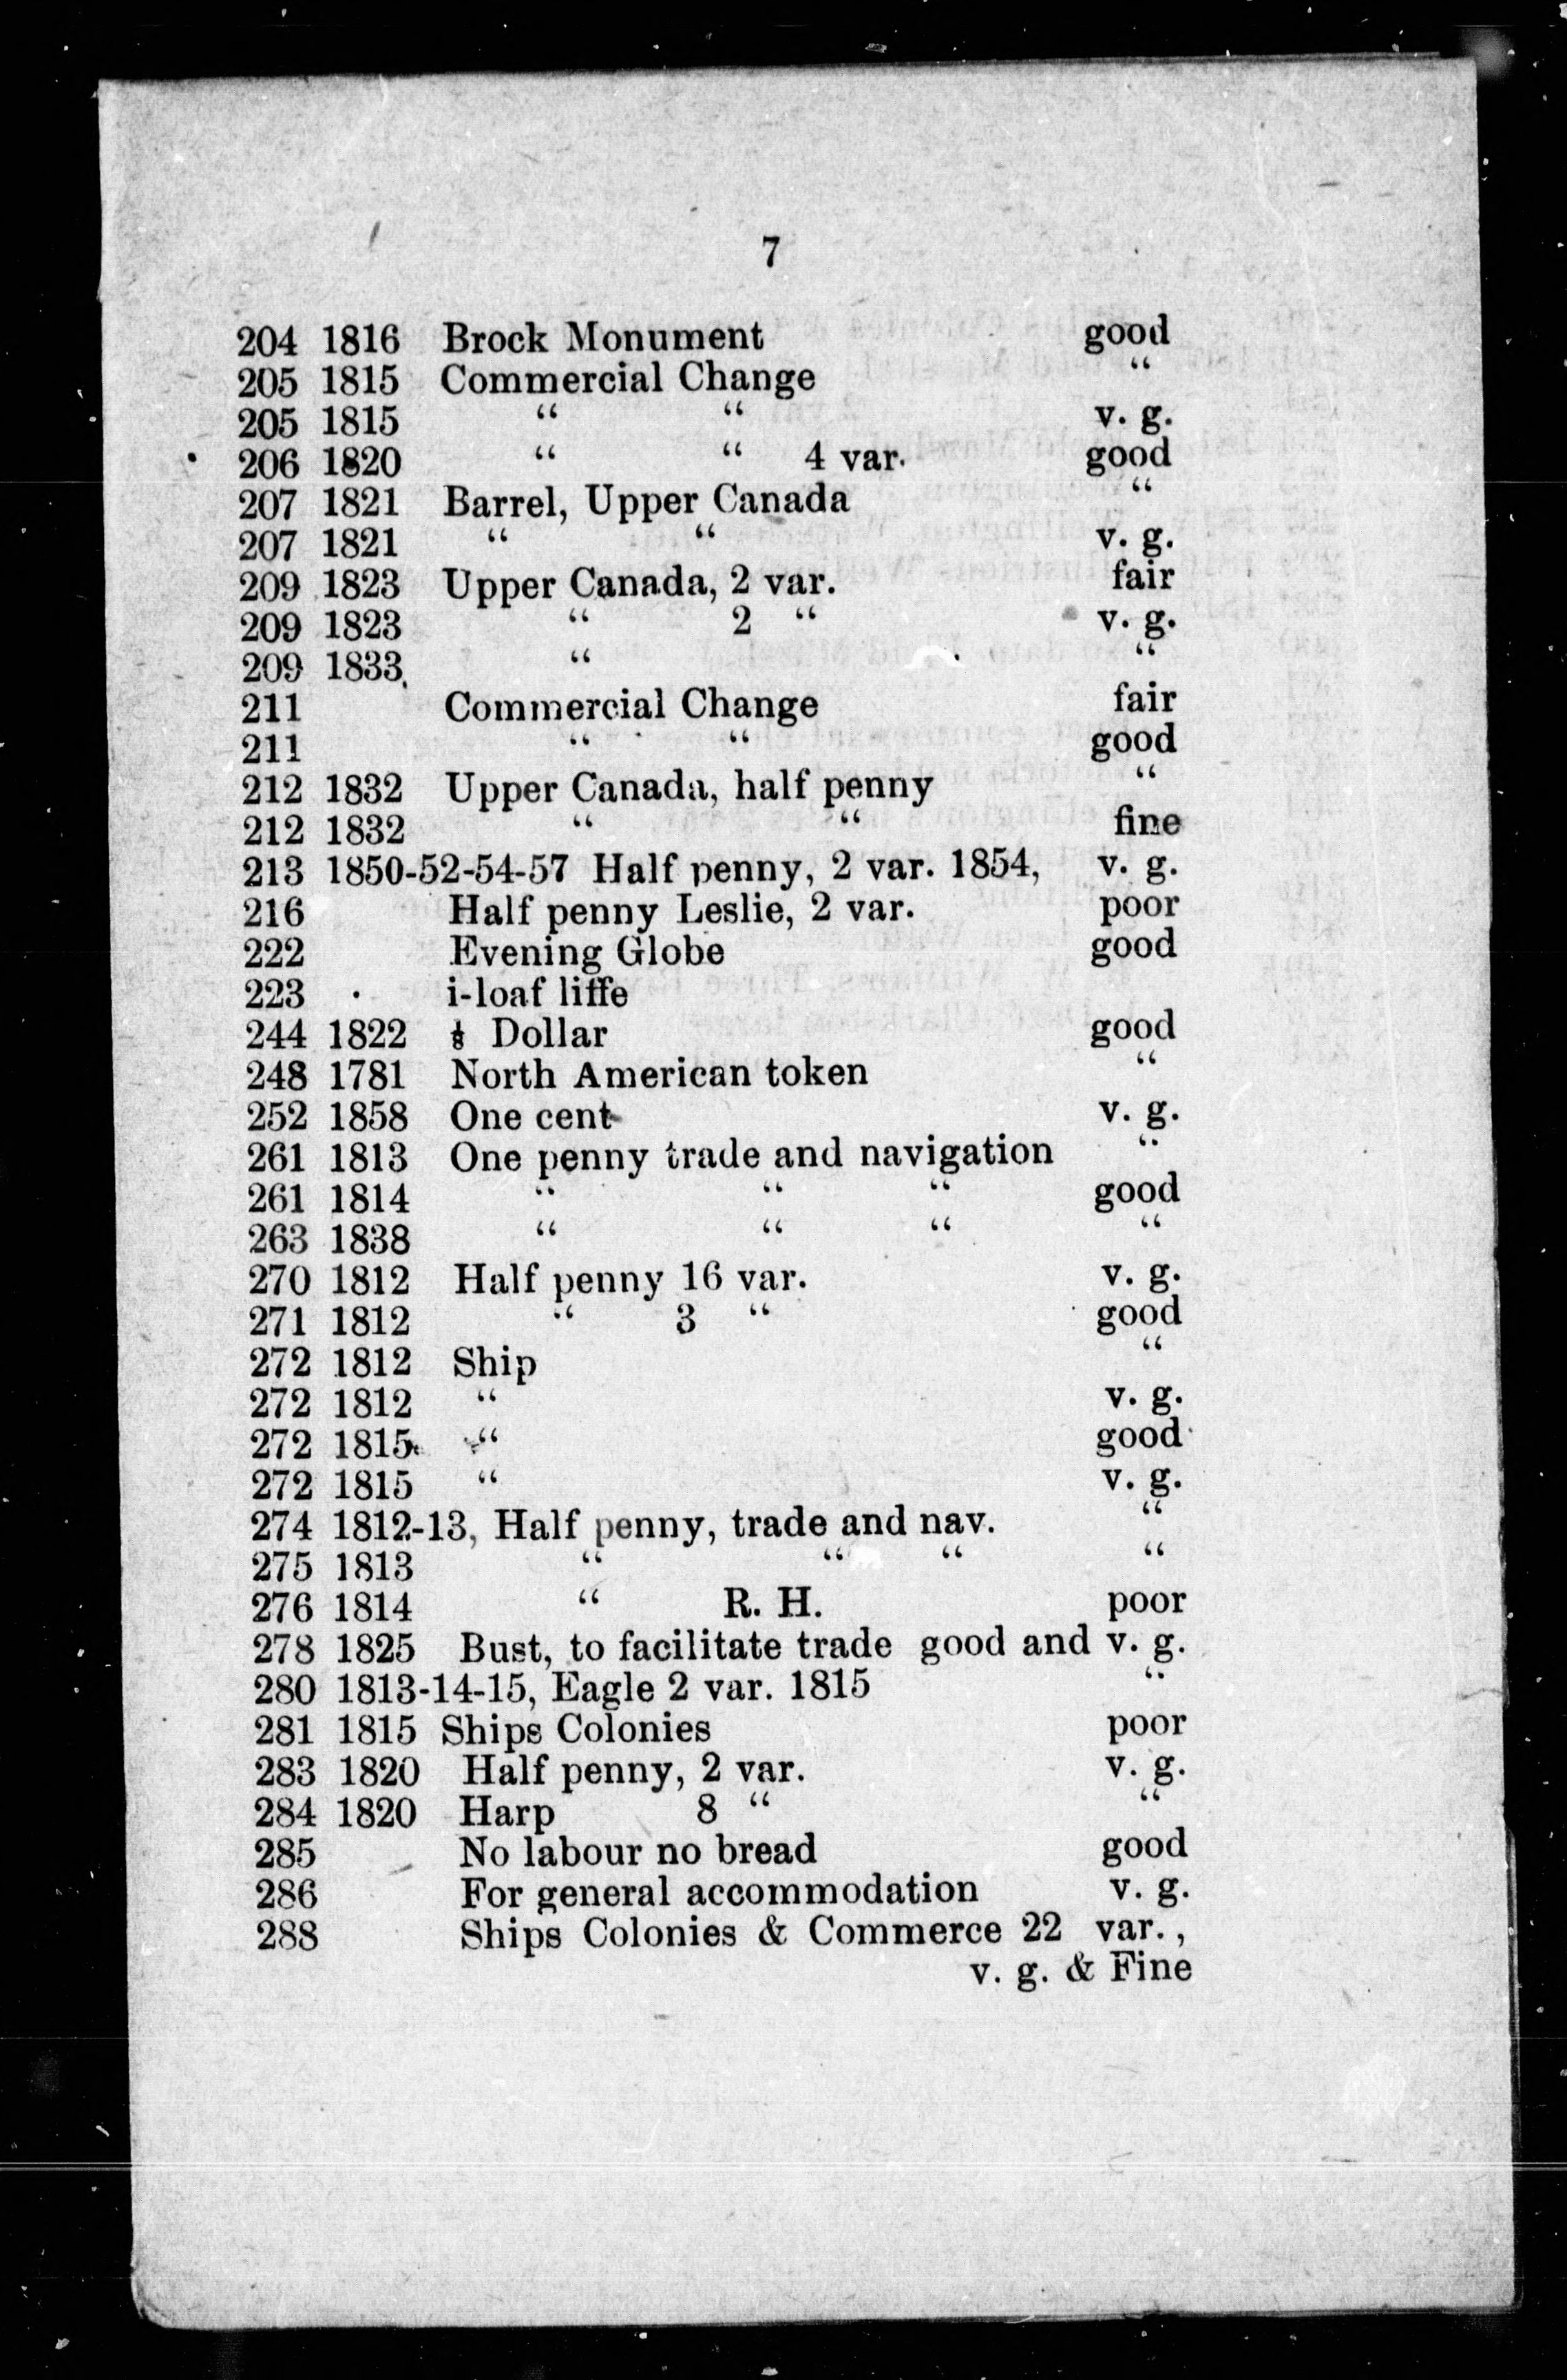 7
204 1816 Brock Monument good
205 1815 Commercial Change “
205 1815 “ “ v. g.
206 1820 “ “ 4 var. good
207 1821 Barrel, Upper Canada “
207 1821 “ “ v. g.
209 1823 Upper Canada, 2 var. fair
209 1823 “ 2 “ v. g.
209 1833 “ “
211 Commercial Change fair
211 “ “ good
212 1832 Upper Canada, half penny “
212 1832 “ “ fine
213 1850-52-54-57 Half penny, 2 var. 1854, v. g.
216 Half penny Leslie, 2 var. poor
222 Evening Globe good
223 i-loaf liffe
244 1822 ⅛ Dollar good
248 1781 North American token “
252 1858 One cent v. g.
261 1813 One penny trade and navigation “
261 1814 “ “ “ good
263 1838 “ “ “ “
270 1812 Half penny 16 var. v. g.
271 1812 “ 3 “ good
272 1812 Ship “
272 1812 “ v. g.
272 1815 “ good
272 1815 “ v. g.
274 1812-13, Half penny, trade and nav. “
275 1813 “ “ “ “
276 1814 “ R. H. poor
278 1825 Bust, to facilitate trade good and v. g.
280 1813-14-15, Eagle 2 var. 1815 “
281 1815 Ships Colonies poor
283 1820 Half penny, 2 var. v. g.
284 1820 Harp 8 “ “
285 No labour no bread good
286 For general accommodation v. g.
288 Ships Colonies & Commerce 22 var.,
v. g. & Fine